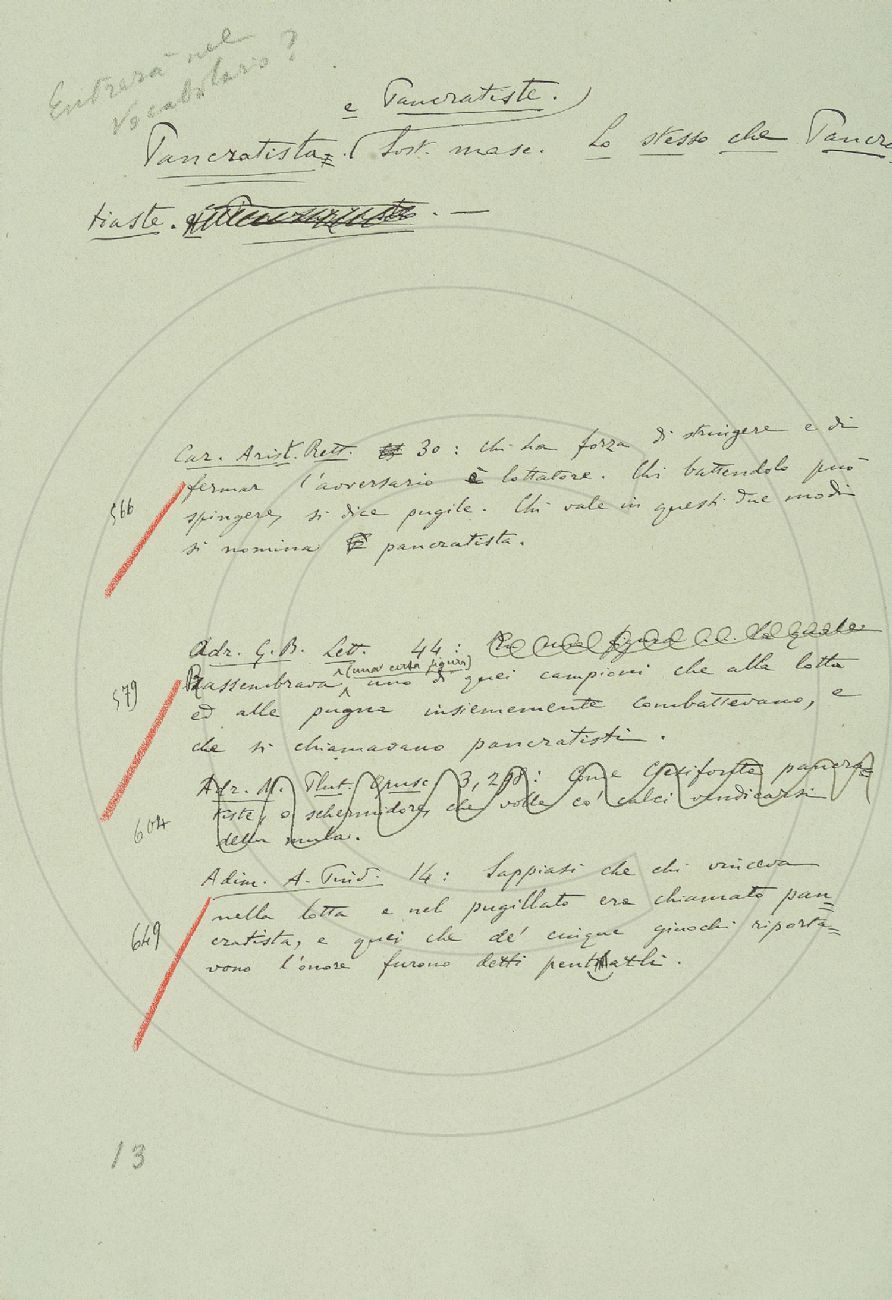 Entrerà nel
Vocabolario?
e Pancratiste.
Pancratista. Sost. masc. Lo stesso che Pancra
tiaste. —
Car. Arist. Rett. 30: Chi ha forza di stringere e di
fermar l'avversario è lottatore. Chi battendolo può
566
spingere, si dice pugile. Chi vale in questi due modi
si nomina pancratista.
Adr. G. B. Lett. 44: la quale
(una certa figura)
Rassembrava uno di quei campioni che alla lotta
579
ed alle pugna insiememente combattevano, e
che si chiamavano pancratisti.
Adr. M. Plut. Opusc. 3, : Come Ctesifonte pancra=
tiste, o schermidore, che volle co' calci vendicarsi
604
della mula.
Adim. A. Pind. 14: Sappiasi che chi vinceva
nella lotta e nel pugillato era chiamato pan=
649
cratista, e quei che de' cinque giuochi riporta=
vono l'onore furono detti pentatli.
13